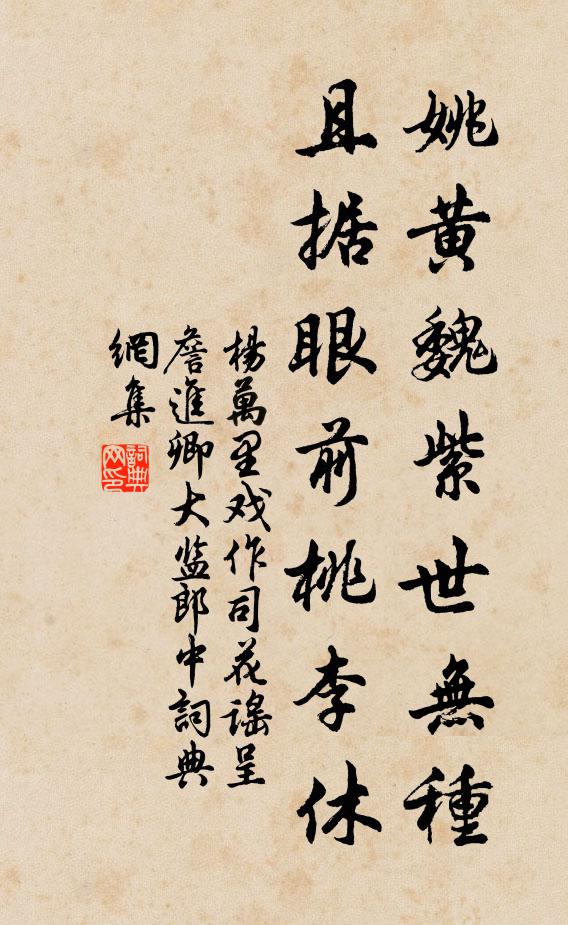 姚黄魏紫世無種
且据眼前桃李休
楊萬里戏作司花謠呈
詹進卿大监郎中詞典
網集
詞典网印